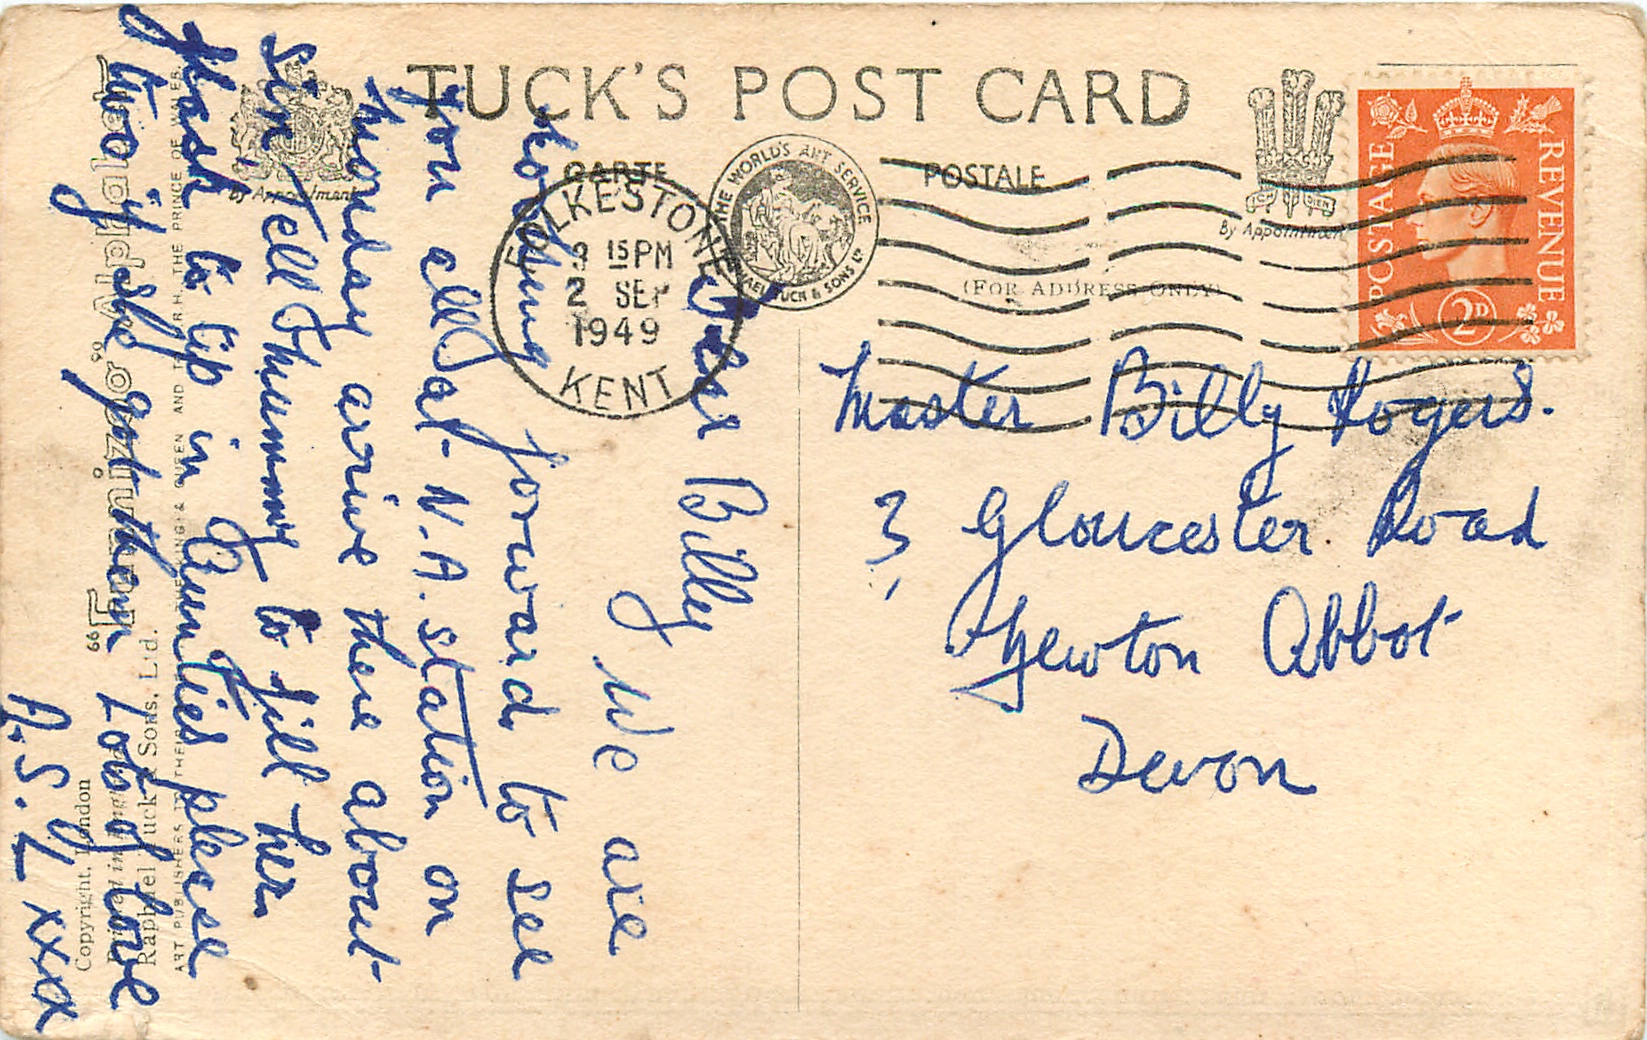 TUCK'S POST CARD
CARTE POSTALE
By Appointment
By Appointment
THE WORLD'S ART SERVICE
RAPHAEL TUCK & SONS LTD
(FOR ADDRESS ONLY)
FOLKESTONE
9 15 PM
2 SEP
1949
KENT
POSTAGE
REVENUE
2D
ICH DIEN
Dear Billy
We are
looking forward to see
you all at N.A. station on
Monday arrive there about
six. Tell Mummy to fill her
flask to tip in Aunties please
two if she got them Lots of love
A.S.L xxx
Master Billy Rogers.
3, Gloucester Road
Newton Abbot
Devon
Copyright, London
Raphael Tuck & Sons, Ltd.
ART PUBLISHERS TO THEIR MAJESTIES THE KING & QUEEN AND TO H.R.H. THE PRINCE OF WALES